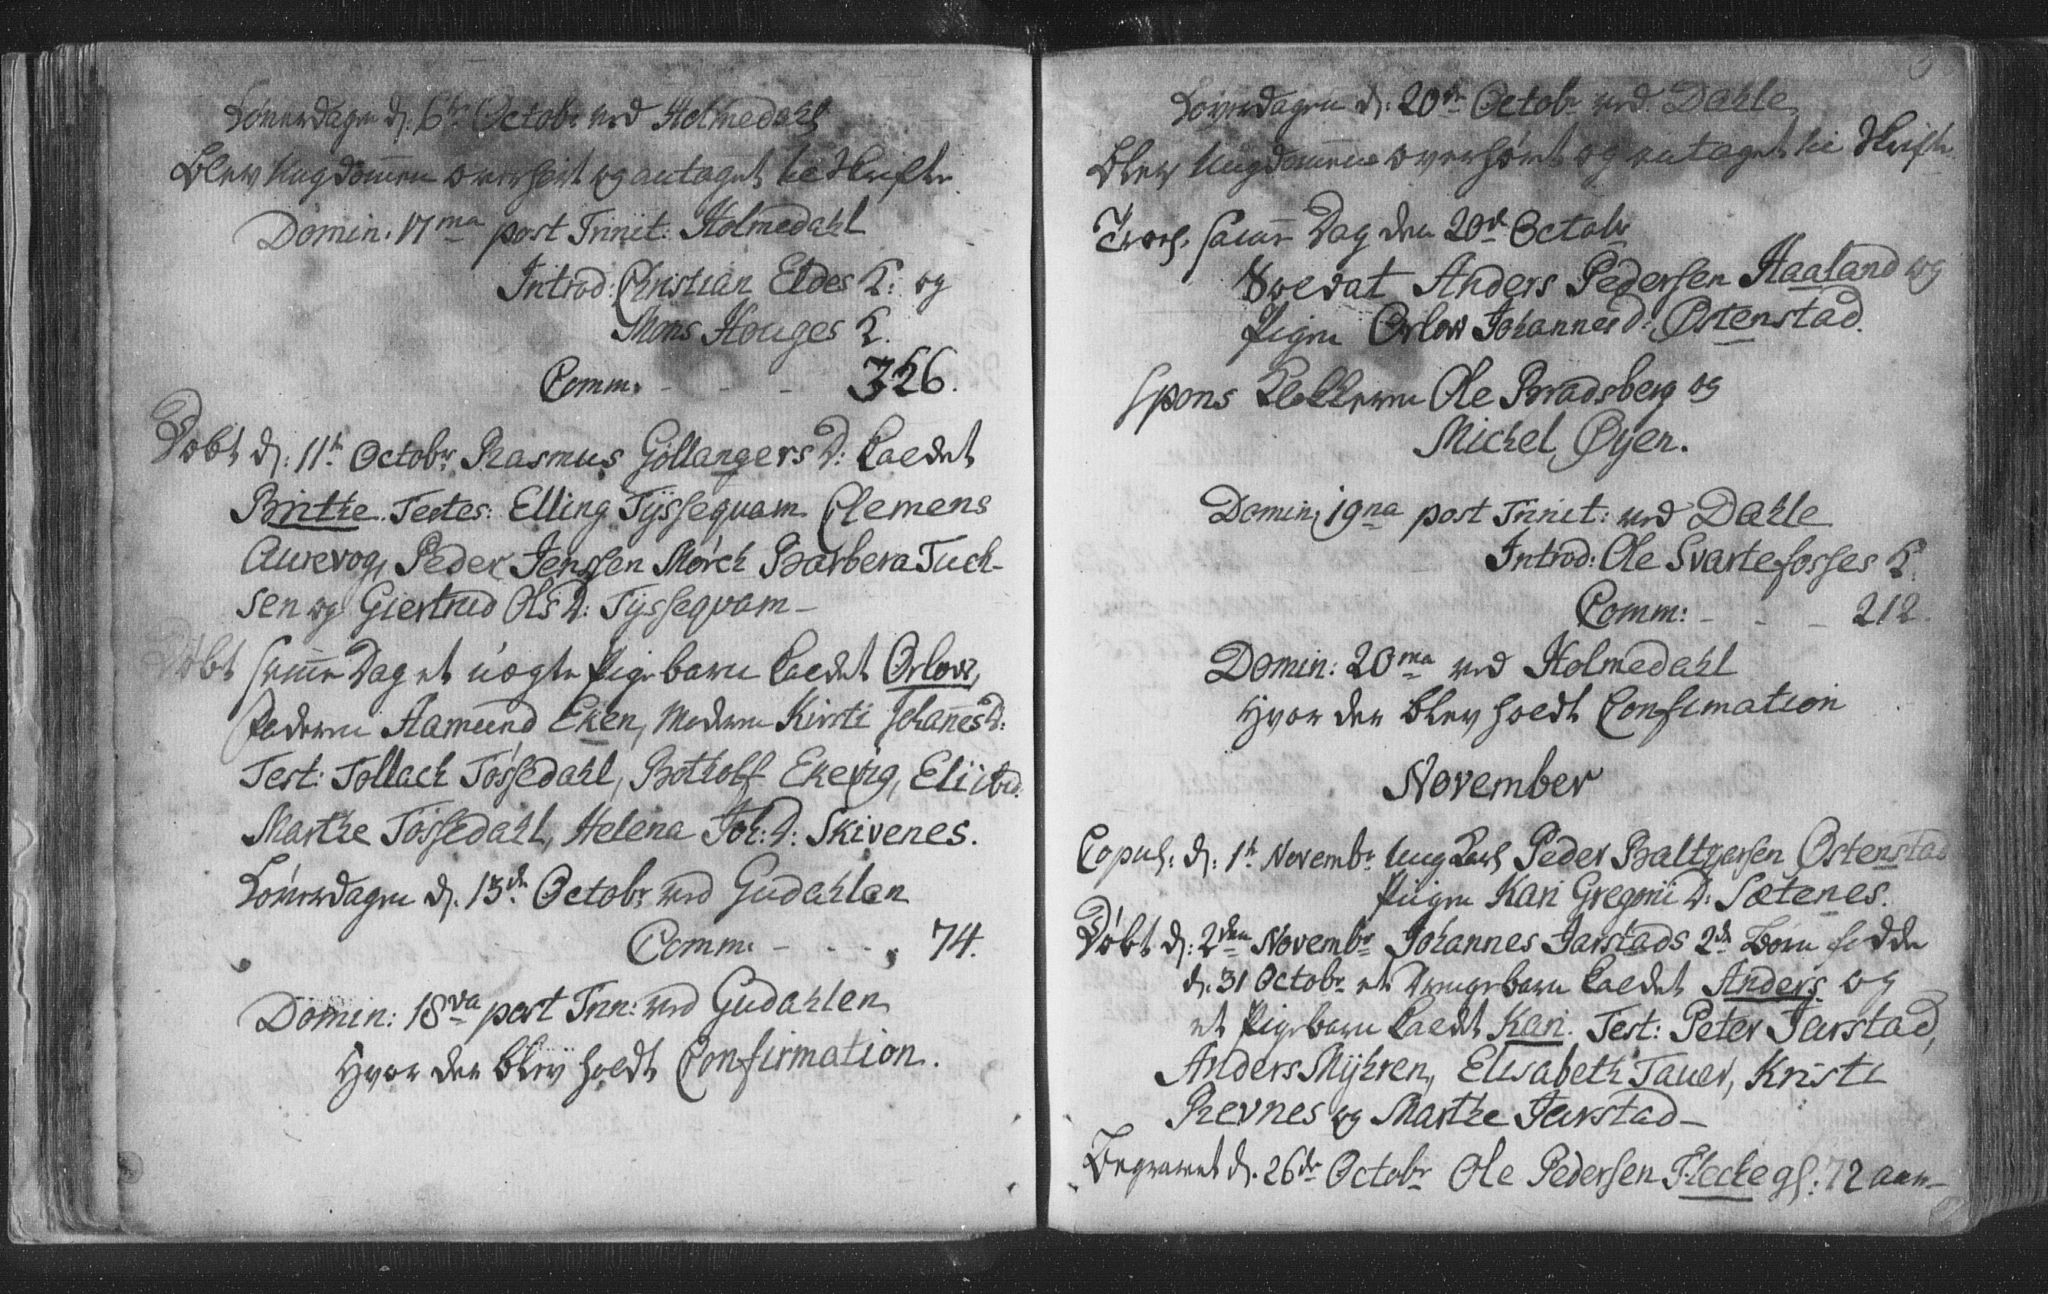 Løverdagen d: 6te Octobr ved Holmedahl
blev Ungdommen overhørt og antaget til Skrifte.
Domin: 17ma post Trinit: Holmedahl
Introd: Christian Eldes K: og
Mons Houges K.
Comm: - - - 326.
Døbt d: 11te Octobr Rasmus Göllangers D: kaldet
Brithe. Testes: Elling Tÿssequam Clemens
Aurevog, Peder Jenssen Mørch Barbera Tuch-
sen og Giertrud Ols D: Tÿssequam -
Døbt samme Dag et uægte Pigebarn kaldet Orlow,
Faderen Aamund Eken, Moderen Kirsti Johannes D:
Test: Tollach Tössedahl, Botholf Ekevig,
Marthe Tössedahl, Helena Joh: D: Skivenes.
Løverdagen d. 13de Octobr ved Gudahlen
Comm: - - - 74.
Domin: 18va post Trin: ved Gudahlen
Hvor der blev holdt Confirmation.
Løverdagen d: 20de Octobr ved Dahle
blev Ungdommen overhørt og antaget til Skrifte.
Trol. samme Dag den 20de Octobr
Soldat Anders Pedersen Haaland og
Pigen Orlow Johannes D: Østenstad.
Spons Klokkeren Ole Bradsberg og
Michel Øyen.
Domin: 19na post Trinit: ved Dahle
Introd: Ole Svartefosses K.
Comm: - - - 212.
Domin: 20ma ved Holmedahl
Hvor der blev holdt Confimation
November
Copul: d: 1te Novembr Ung Karl Peder Baltzersen Østenstad
Piigen Kari Gregorii D: Sætenes.
Døbt d: 2den Novembr Johannes Jarstads 2de Børn fødde
d. 31 Octobr et Drengebarn kaldet Anders og
et Pigebarn kaldet Kari. Test: Peter Jarstad,
Anders Mÿhren, Elisabeth Tauer, Kristi
Revnes og Marthe Jarstad -
Begravet d. 26de Octobr Ole Pedersen Flecke gl: 72 aar -